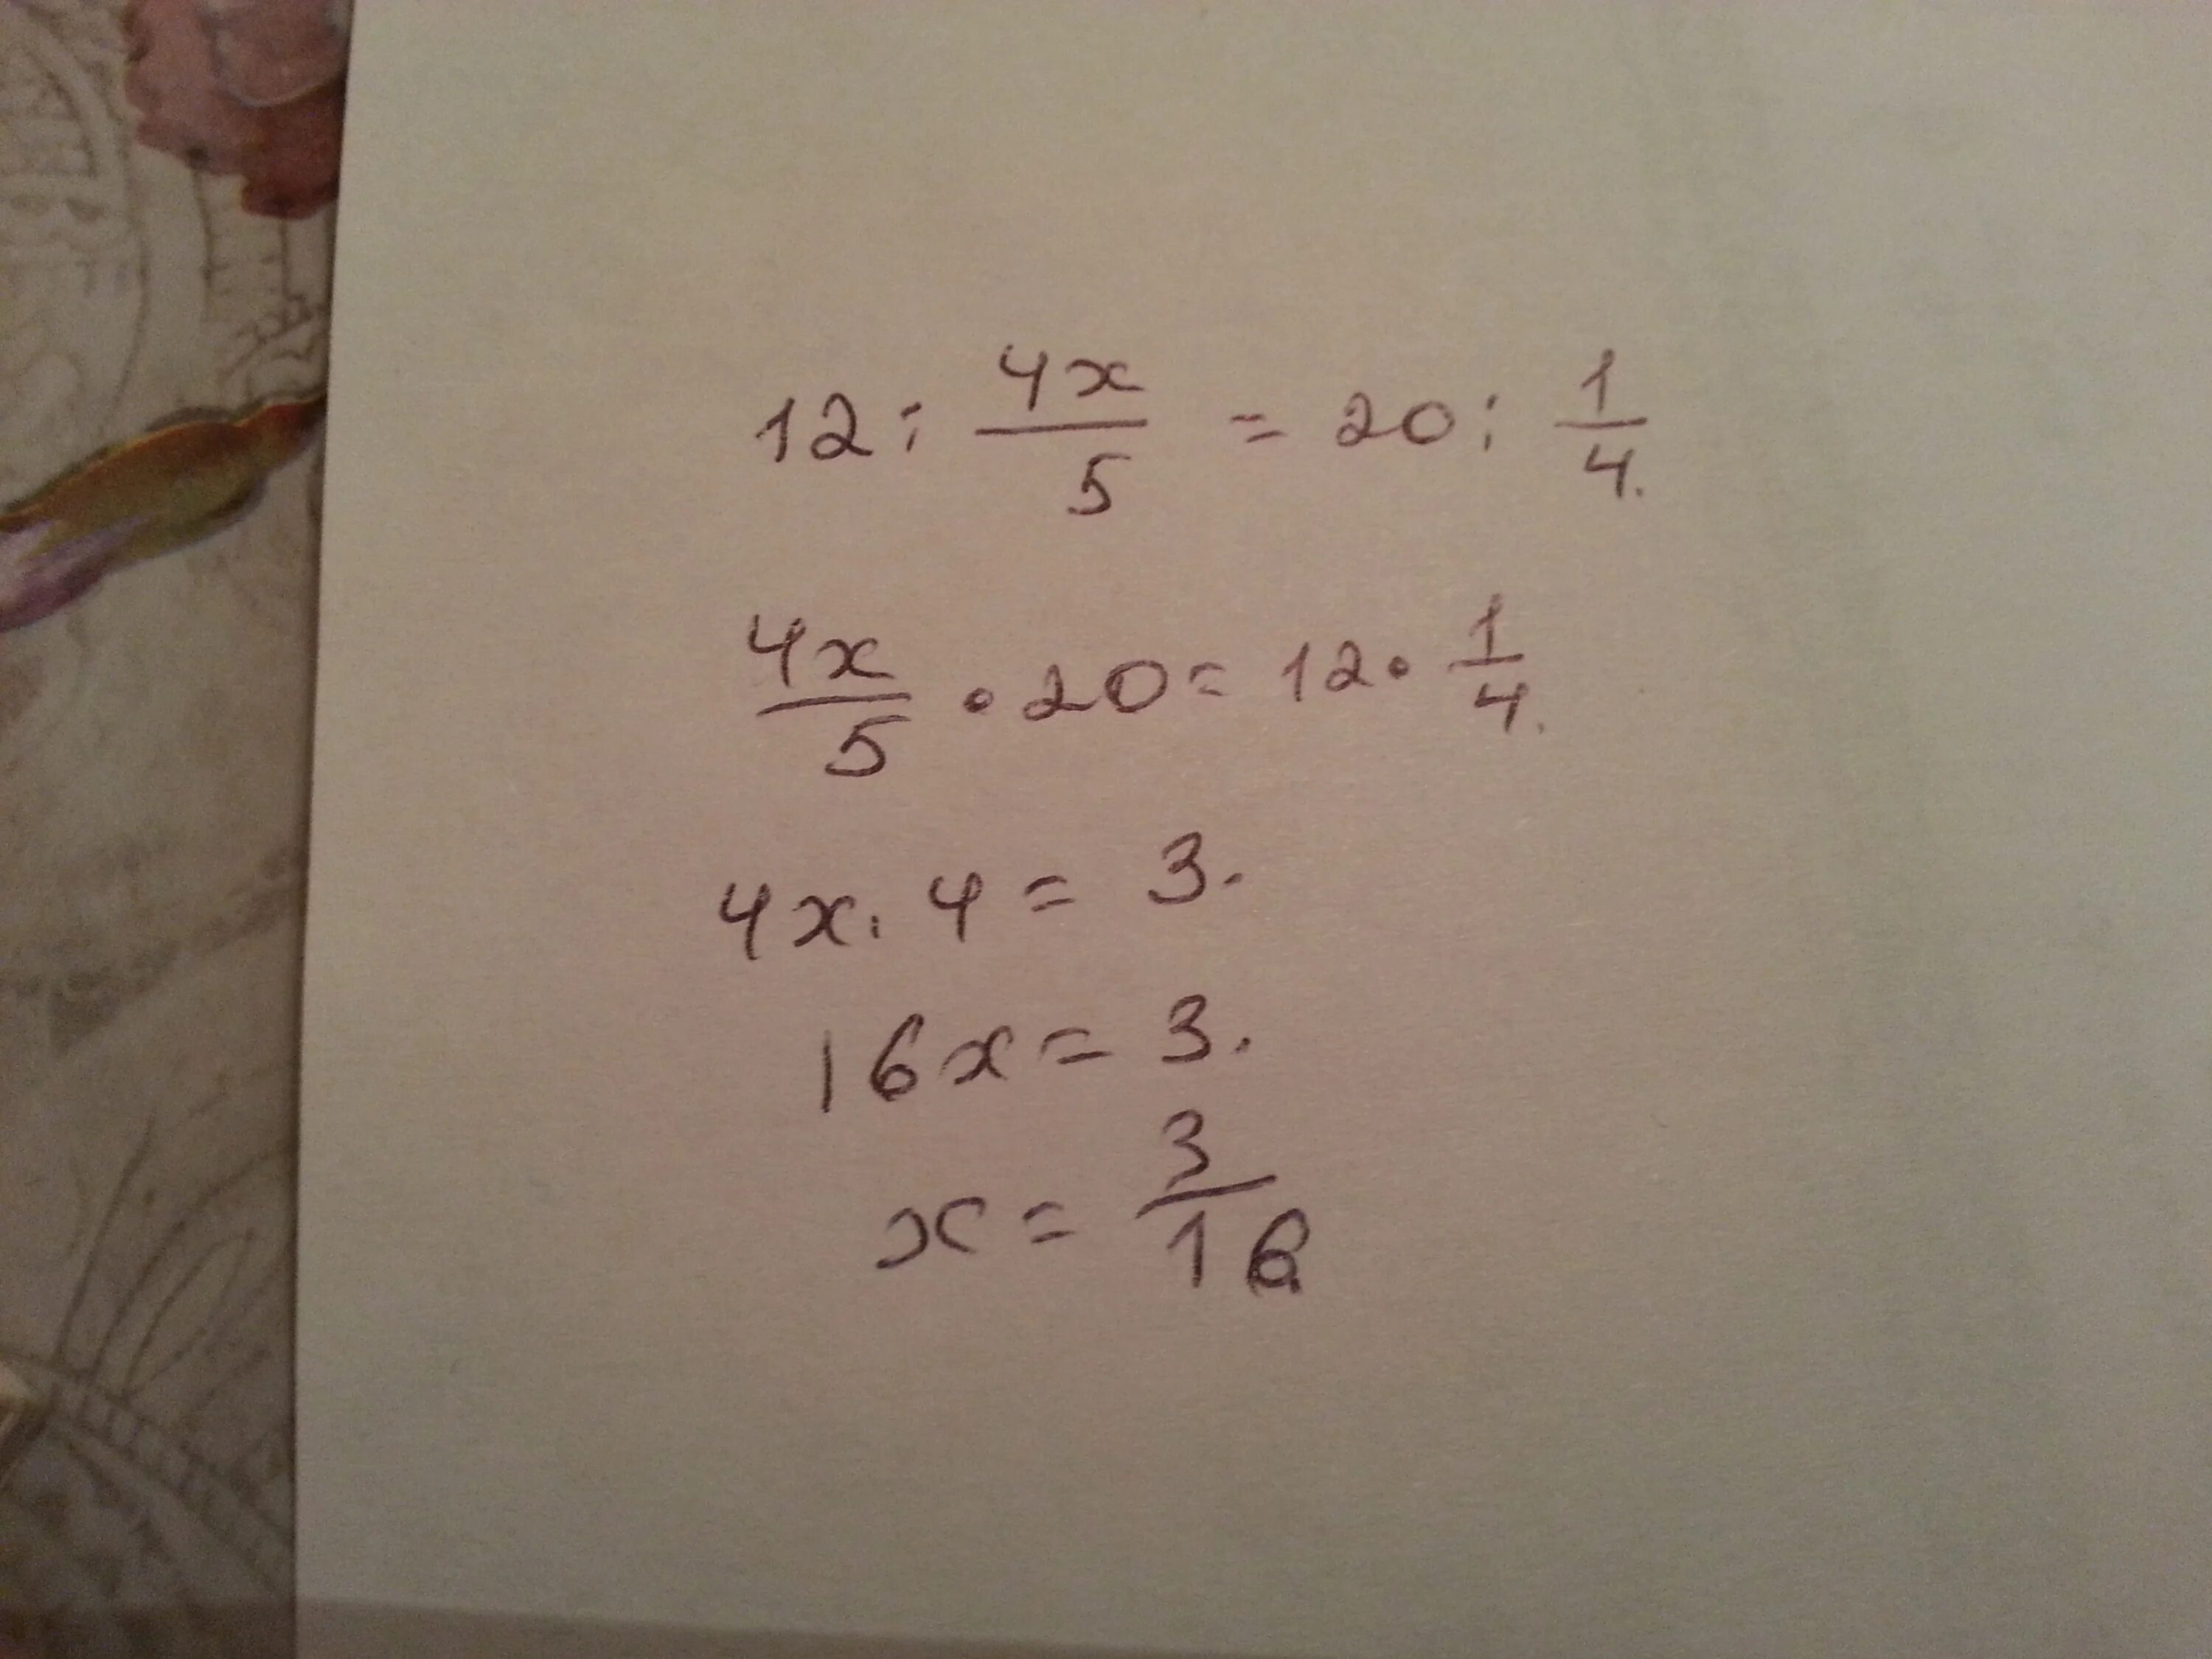 12 : 4x/5 = 20 : 1/4.
4x/5 • 20 = 12 • 1/4.
4x . 4 = 3.
16x = 3.
x = 3/16